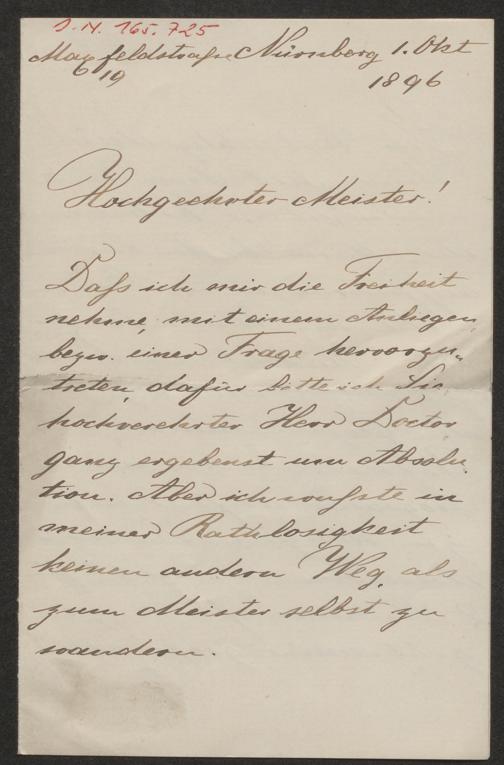 I. N. 165.725
Maxfeldstraße Nürnberg 1. Okt
19 1896
Hochgeehrter Meister!
Daß ich mir die Freiheit
nehme, mit einem Anliegen
bezw. einer Frage hervorzu„
treten, dafür bitte ich Sie
hochverehrter Herr Doctor
ganz ergebenst um Absolu„
tion. Aber ich wußte in
meiner Rathlosigkeit
keinen andern Weg, als
zum Meister selbst zu
wandern.